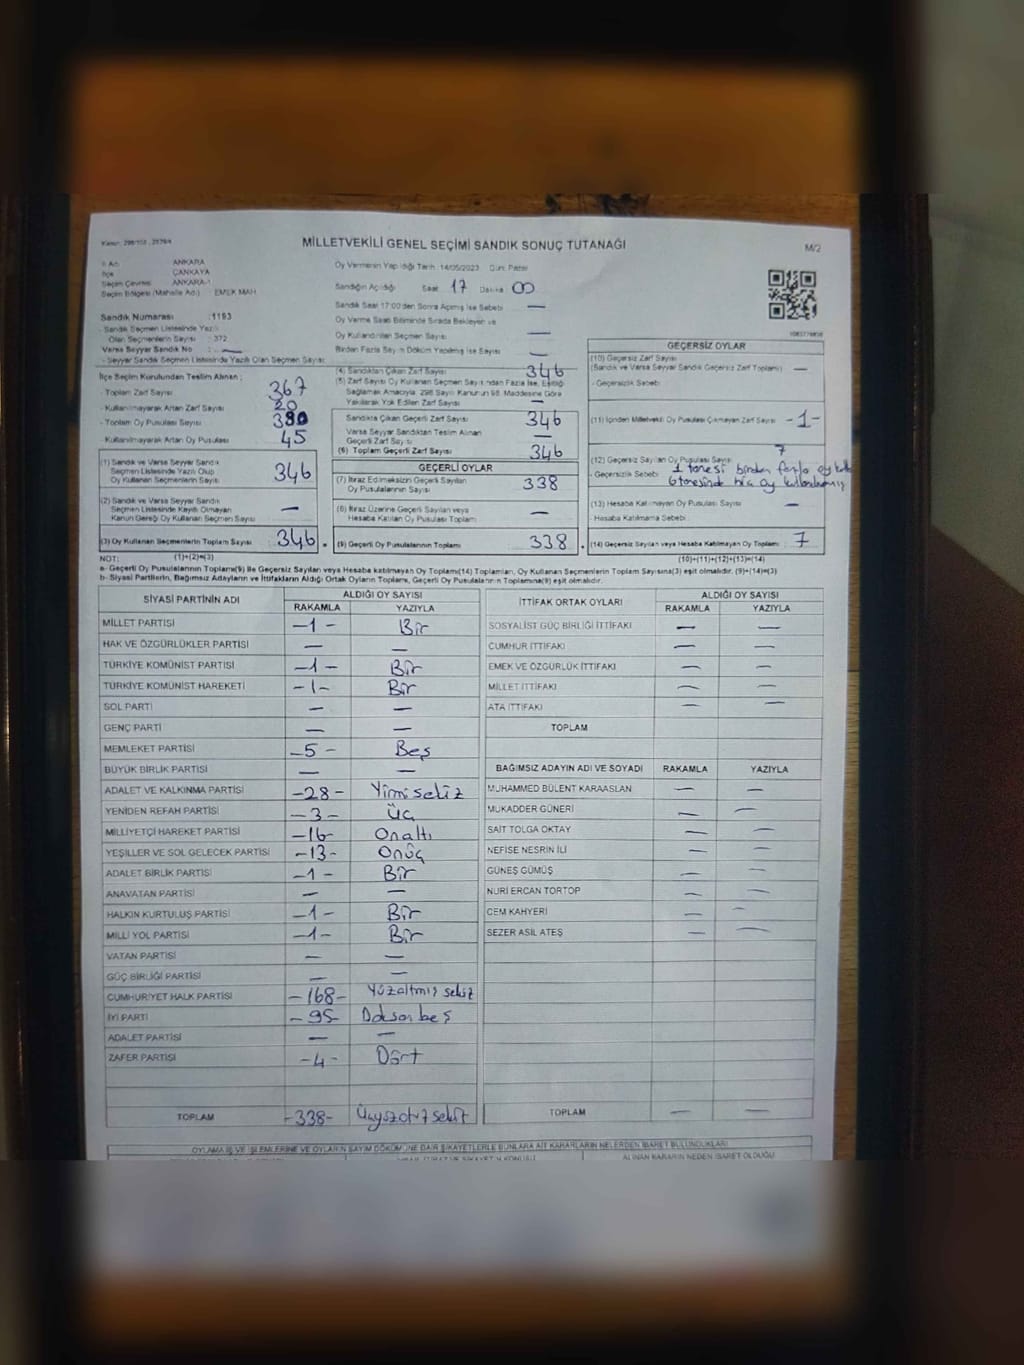 MİLLETVEKİLİ GENEL SEÇİMİ SANDIK SONUÇ TUTANAĞI
M/2
İl Adı ANKARA
İlçe ÇANKAYA
Seçim Çevresi ANKARA-1
Seçim Bölgesi (Mahalle Adı) EMEK MAH
Sandık Numarası :1193
- Sandık Seçmen Listesinde Yazılı
Olan Seçmenlerin Sayısı : 372
Varsa Seyyar Sandık No : —
- Seyyar Sandık Seçmen Listesinde Yazılı Olan Seçmen Sayısı :
Oy Vermenin Yapıldığı Tarih :14/05/2023 Gün: Pazar
Sandığın Açıldığı Saat 17 Dakika 00
Sandık Saat 17:00'den Sonra Açılmış İse Sebebi —
Oy Verme Saati Bitiminde Sırada Bekleyen ve
Oy Kullandırılan Seçmen Sayısı —
Birden Fazla Sayım Döküm Yapılmış İse Sayısı —
İlçe Seçim Kurulundan Teslim Alınan ;
- Toplam Zarf Sayısı 367
- Kullanılmayarak Artan Zarf Sayısı 20
- Toplam Oy Pusulası Sayısı
- Kullanılmayarak Artan Oy Pusulası 45
(1) Sandık ve Varsa Seyyar Sandık
Seçmen Listesinde Yazılı Olup
Oy Kullanan Seçmenlerin Sayısı 346
(2) Sandık ve Varsa Seyyar Sandık
Seçmen Listesinde Kayıtlı Olmayan
Kanun Gereği Oy Kullanan Seçmen Sayısı —
(3) Oy Kullanan Seçmenlerin Toplam Sayısı 346
(1)+(2)=(3)
(4) Sandıktan Çıkan Zarf Sayısı 346
(5) Zarf Sayısı Oy Kullanan Seçmen Sayısından Fazla İse, Eşitliği
Sağlamak Amacıyla, 298 Sayılı Kanunun 98. Maddesine Göre
Yakılarak Yok Edilen Zarf Sayısı —
Sandıkta Çıkan Geçerli Zarf Sayısı 346
Varsa Seyyar Sandıktan Teslim Alınan
Geçerli Zarf Sayısı —
(6) Toplam Geçerli Zarf Sayısı 346
GEÇERLİ OYLAR
(7) İtiraz Edilmeksizin Geçerli Sayılan
Oy Pusulalarının Sayısı 338
(8) İtiraz Üzerine Geçerli Sayılan veya
Hesaba Katılan Oy Pusulası Toplamı —
(9) Geçerli Oy Pusulalarının Toplamı 338
GEÇERSİZ OYLAR
(10) Geçersiz Zarf Sayısı
(Sandık ve Varsa Seyyar Sandık Geçersiz Zarf Toplamı) —
- Geçersizlik Sebebi
(11) İçinden Milletvekili Oy Pusulası Çıkmayan Zarf Sayısı -1-
(12) Geçersiz Sayılan Oy Pusulası Sayısı 7
- Geçersizlik Sebebi 1 tanesi birden fazla oy
6 tanesinde hiç oy kullanılmamış
(13) Hesaba Katılmayan Oy Pusulası Sayısı —
- Hesaba Katılmama Sebebi
(14) Geçersiz Sayılan veya Hesaba Katılmayan Oy Toplamı 7
(10)+(11)+(12)+(13)=(14)
NOT:
a- Geçerli Oy Pusulalarının Toplamı(9) ile Geçersiz Sayılan veya Hesaba Katılmayan Oy Toplamı(14) Toplamları, Oy Kullanan Seçmenlerin Toplam Sayısına(3) eşit olmalıdır. (9)+(14)=(3)
b- Siyasi Partilerin, Bağımsız Adayların ve İttifakların Aldığı Ortak Oyların Toplamı, Geçerli Oy Pusulalarının Toplamına(9) eşit olmalıdır.
SİYASİ PARTİNİN ADI ALDIĞI OY SAYISI
RAKAMLA YAZIYLA
MİLLET PARTİSİ -1- Bir
HAK VE ÖZGÜRLÜKLER PARTİSİ — —
TÜRKİYE KOMÜNİST PARTİSİ -1- Bir
TÜRKİYE KOMÜNİST HAREKETİ -1- Bir
SOL PARTİ — —
GENÇ PARTİ — —
MEMLEKET PARTİSİ -5- Beş
BÜYÜK BİRLİK PARTİSİ — —
ADALET VE KALKINMA PARTİSİ -28- Yirmisekiz
YENİDEN REFAH PARTİSİ -3- Üç
MİLLİYETÇİ HAREKET PARTİSİ -16- Onaltı
YEŞİLLER VE SOL GELECEK PARTİSİ -13- Onüç
ADALET BİRLİK PARTİSİ -1- Bir
ANAVATAN PARTİSİ — —
HALKIN KURTULUŞ PARTİSİ -1- Bir
MİLLİ YOL PARTİSİ -1- Bir
VATAN PARTİSİ — —
GÜÇ BİRLİĞİ PARTİSİ — —
CUMHURİYET HALK PARTİSİ -168- Yüzaltmış sekiz
İYİ PARTİ -95- Doksan beş
ADALET PARTİSİ — —
ZAFER PARTİSİ -4- Dört
TOPLAM -338- Üçyüzotuzsekiz
İTTİFAK ORTAK OYLARI ALDIĞI OY SAYISI
RAKAMLA YAZIYLA
SOSYALİST GÜÇ BİRLİĞİ İTTİFAKI — —
CUMHUR İTTİFAKI — —
EMEK VE ÖZGÜRLÜK İTTİFAKI — —
MİLLET İTTİFAKI — —
ATA İTTİFAKI — —
TOPLAM
BAĞIMSIZ ADAYIN ADI VE SOYADI RAKAMLA YAZIYLA
MUHAMMED BÜLENT KARAASLAN — —
MUKADDER GÜNERİ — —
SAİT TOLGA OKTAY — —
NEFİSE NESRİN İLİ — —
GÜNEŞ GÜMÜŞ — —
NURİ ERCAN TORTOP — —
CEM KAHYERİ — —
SEZER ASİL ATEŞ — —
TOPLAM — —
OYLAMA İŞ VE İŞLEMLERİNE VE OYLARIN SAYIM DÖKÜMÜNE DAİR ŞİKAYETLERLE BUNLARA AİT KARARLARIN NELERDEN İBARET BULUNDUKLARI
ALINAN KARARIN NEDEN İBARET OLDUĞU